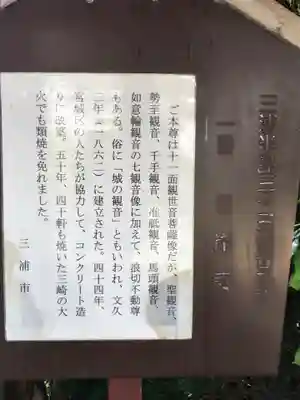 ご本尊は十一面観世音菩薩像だが、聖観音、
勢至観音、千手観音、准胝観音、馬頭観音、
如意輪観音の七観音像に加えて、浪切不動尊
もある。俗に「城の観音」ともいわれ、文久
三年(一八六二)に建立された。四十四年、
宮城区の人たちが協力して、コンクリート造
りに改築。五十年、四十軒も焼いた三崎の大
火でも類焼を免れました。
三浦市